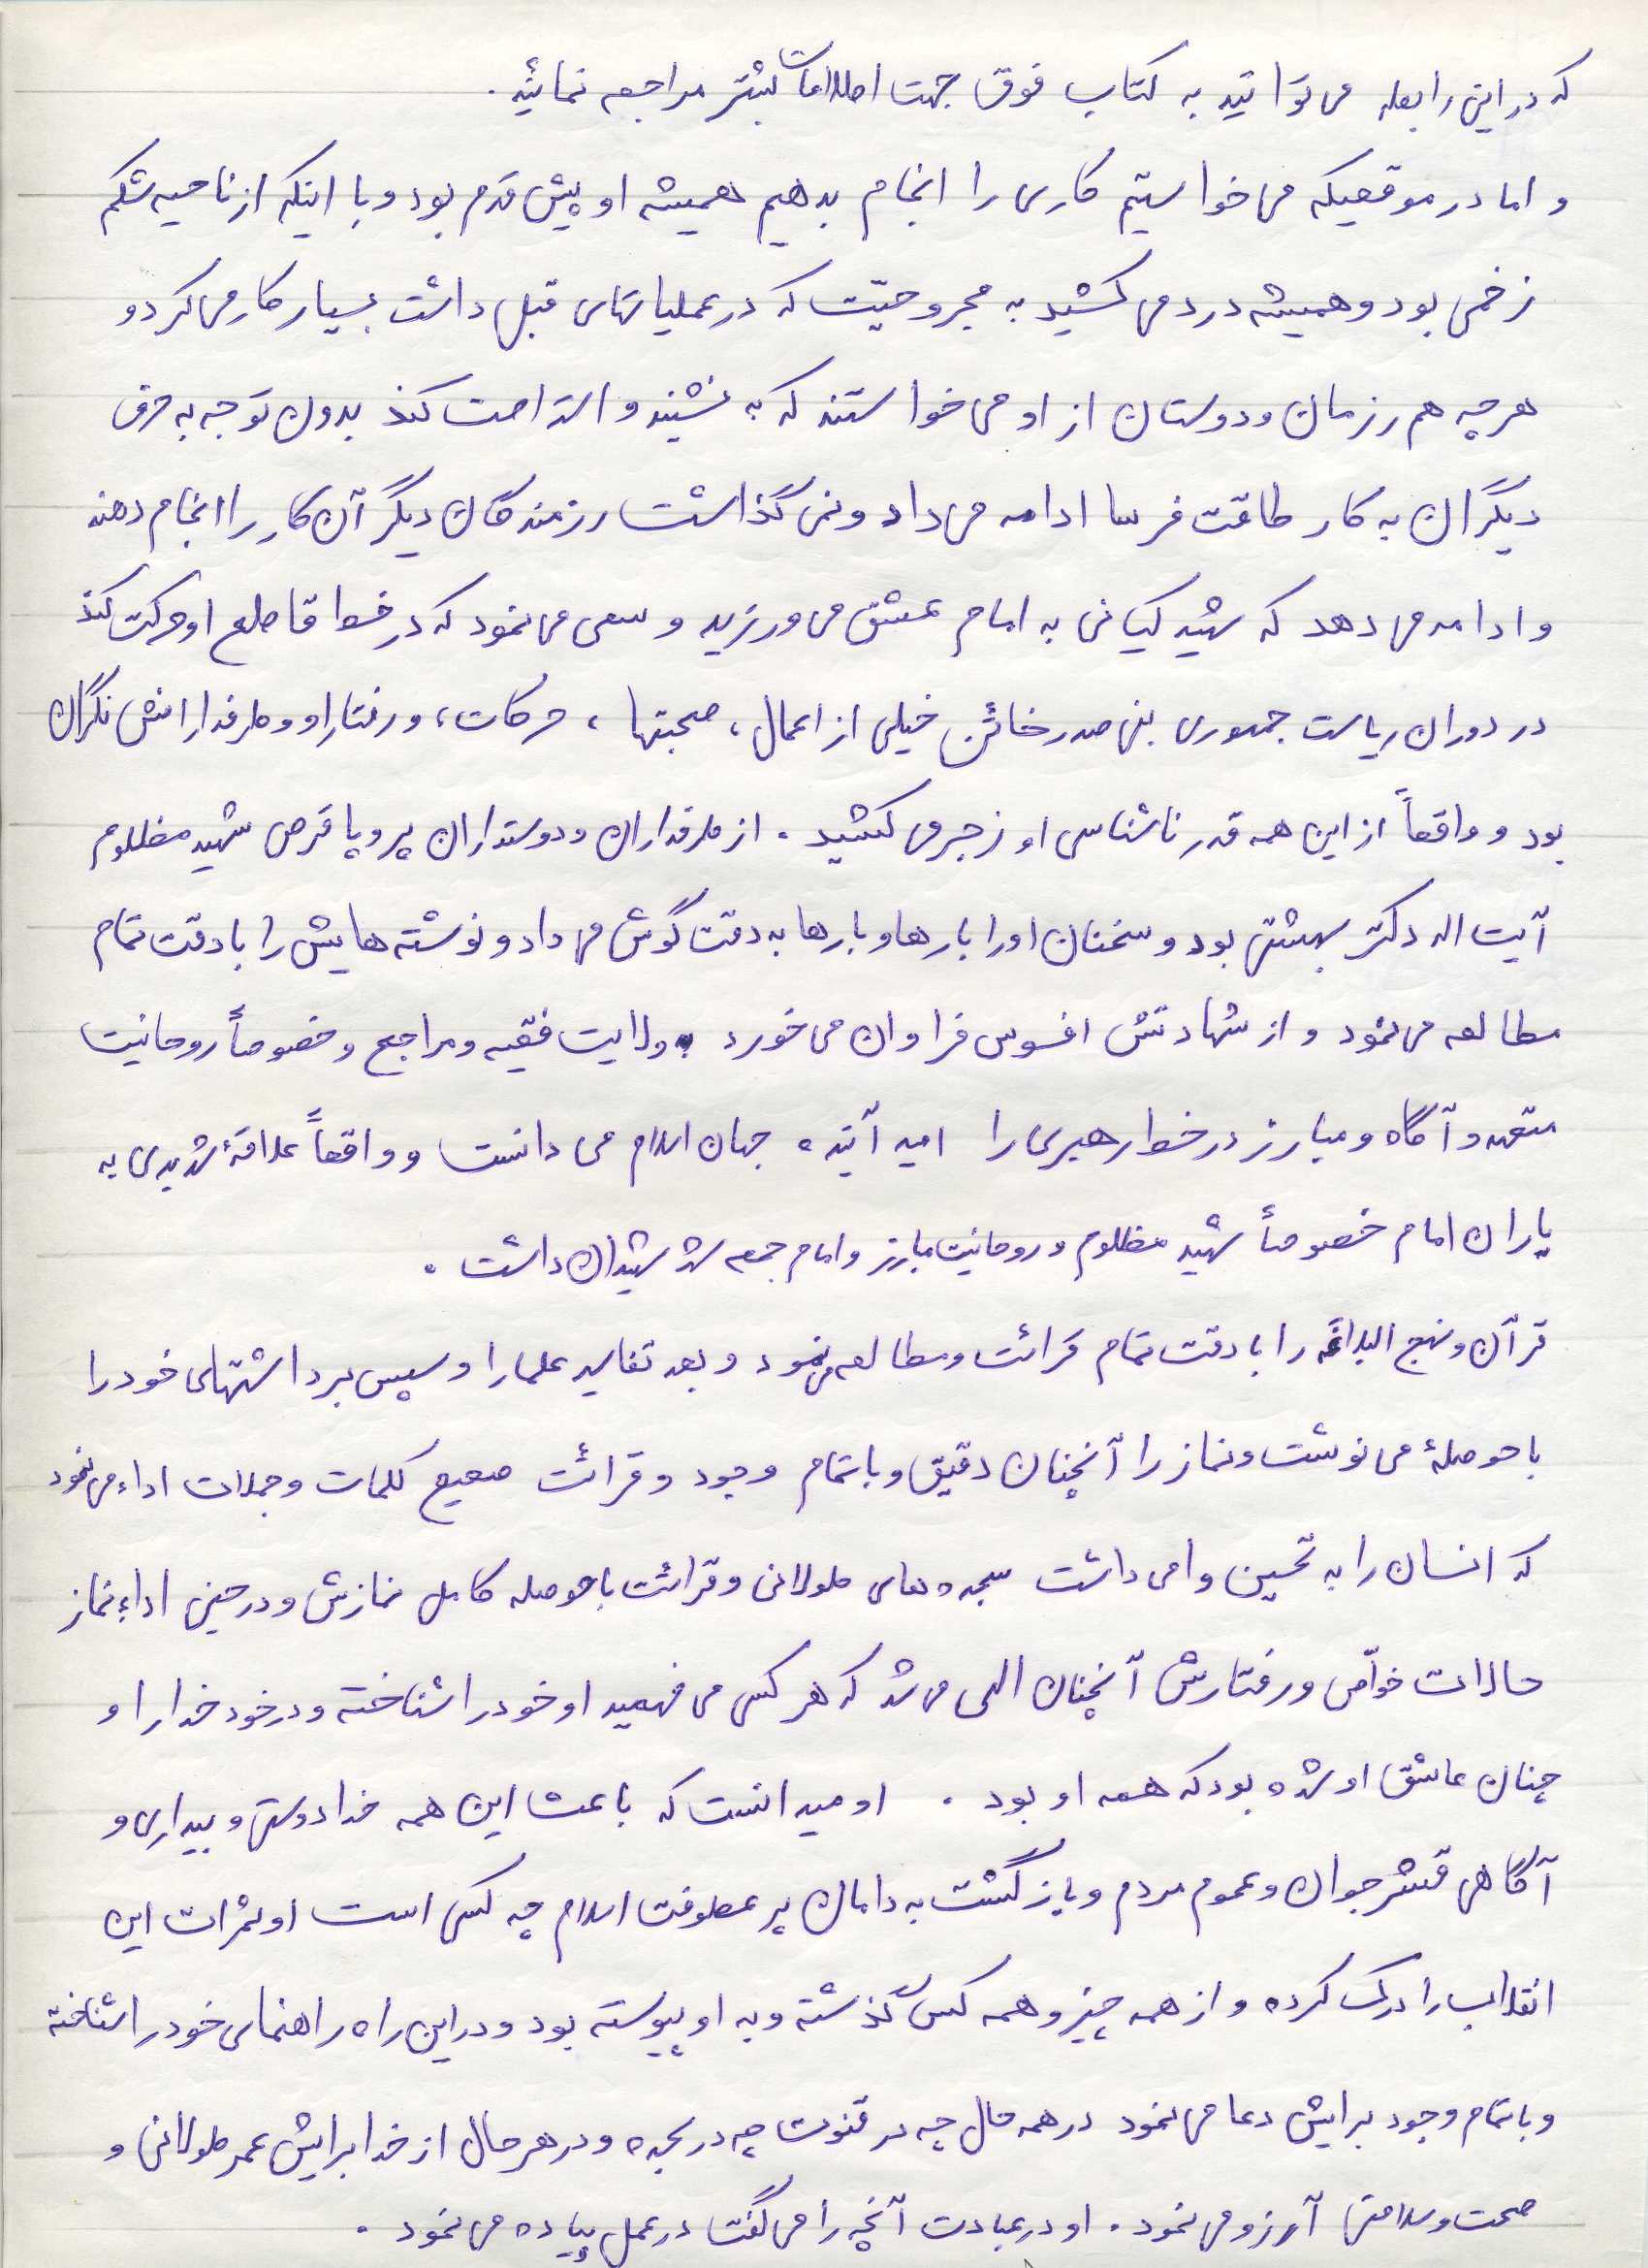 که در این رابطه می توانید به کتاب فوق جهت اطلاعات بیشتر مراجعه نمائید .
و اما در موقعیکه می خواستیم کاری را انجام بدهیم همیشه او پیش قدم بود و با اینکه از ناحیه شکم
زخمی بود و همیشه درد می کشید به مجروحیّت که در عملیاتهای قبل داشت بسیار کار می کرد و
هر چه هم رزمان و دوستان از او می خواستند که به نشیند و استراحت کند بدون توجه به حرف
دیگران به کار طاقت فرسا ادامه می داد و نمی گذاشت رزمندگان دیگر آن کار را انجام دهند
و ادامه می دهد که شهید کیانی به امام عشق می ورزید و سعی می نمود که در خط قاطع او حرکت کند
در دوران ریاست جمهوری بنی صدر خائن خیلی از اعمال ، صحبتها ، حرکات ، و رفتار او و طرفدارانش نگران
بود و واقعاً از این همه قدر ناشناسی او زجر می کشید . از طرفداران و دوستداران پر و پا قرص شهید مظلوم
آیت اله دکتر بهشتی بود و سخنان او را بارها و بارها به دقت گوش می داد و نوشته هایش را با دقت تمام
مطالعه می نمود و از شهادتش افسوس فراوان می خورد . ولایت فقیه و مراجع و خصوصاً روحانیت
متعهد و آگاه و مبارز در خط رهبری را امید آینده جهان اسلام می دانست و واقعاً علاقهٔ شدیدی به
یاران امام خصوصاً شهید مظلوم و روحانیت مبارز و امام جمعه شهر شهیدان داشت .
قرآن و نهج البلاغه را با دقت تمام قرائت و مطالعه می نمود و بعد تفاسیر علما را و سپس برداشتهای خود را
با حوصلهٔ می نوشت و نماز را آنچنان دقیق و با تمام وجود و قرائت صحیح کلمات و جملات اداء می نمود
که انسان را به تحسین وا می داشت سجده های طولانی و قرائت با حوصله کامل نمازش و در حین اداء نماز
حالات خواصّی و رفتارش آنچنان الهی می شد که هر کسی می فهمید او خود را شناخته و در خود خدا را و
چنان عاشق او شده بود که همه او بود . او میدانست که باعث این همه خدا دوستی و بیداری و
آگاهی قشر جوان و عموم مردم و بازگشت به دامان پر عطوفت اسلام چه کسی است او ثمرات این
انقلاب را درک کرده و از همه چیز و همه کس گذشته و به او پیوسته بود و در این راه راهنمای خود را شناخته
و با تمام وجود برایش دعا می نمود در همه حال چه در قنوت چه در سجده و در هر حال از خدا برایش عمر طولانی و
صحت و سلامتی آرزو می نمود . او در عبادت آنچه را می گفت در عمل پیاده می نمود .